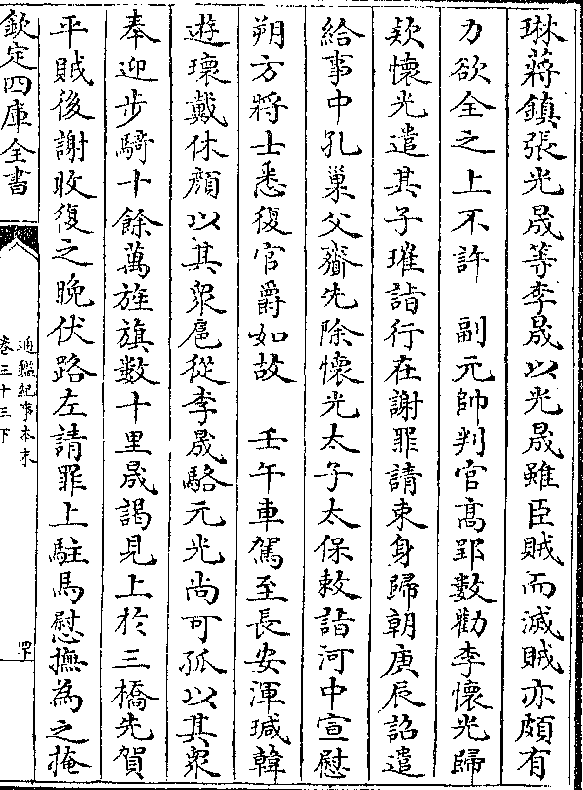 琳蔣鎮張光晟等李晟以光晟雖臣賊而滅賊亦頗有
力欲全之上不許　副元帥判官高郢數勸李懷光歸
欵懷光遣其子璀詣行在謝罪請束身歸朝庚辰詔遣
給事中孔巢父齎先除懷光太子太保敕詣河中宣慰
朔方將士悉復官爵如故　壬午車駕至長安渾瑊韓
遊瓌戴休顏以其衆扈從李晟駱元光尚可孤以其衆
奉迎步騎十餘萬旌旗數十里晟謁見上於三橋先賀
平賊後謝收復之晚伏路左請罪上駐馬慰撫為之掩
欽定四庫全書
通鑑紀事本末
卷三十三下